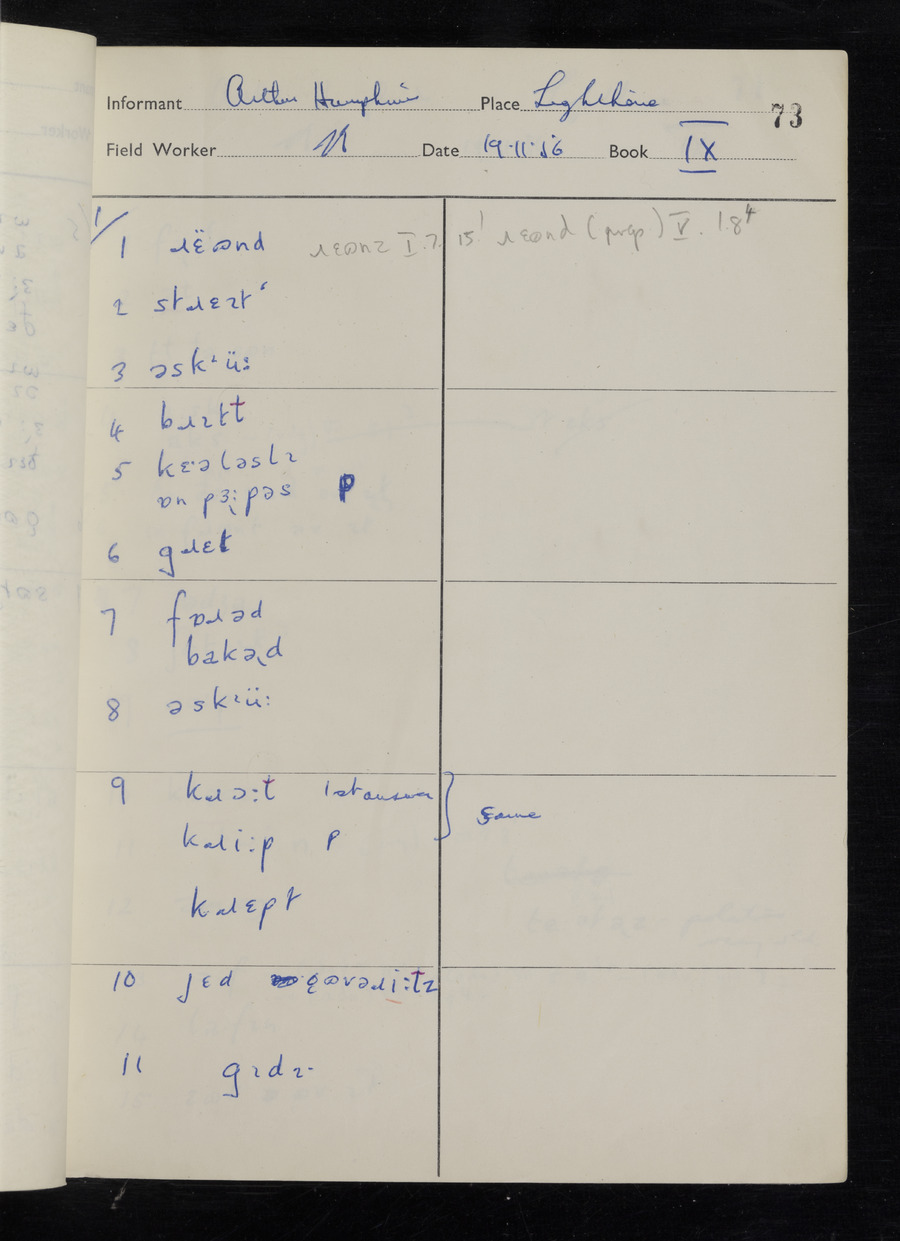 Informant Arthur Humphries Place Lighthorne 73
Field Worker Date 19·11·56 Book IX
1/
1 ɹɛ̈ʊnd ɹɛʊnz I.7.15¹ ɹɛʊnd (prep) V.1.8⁴
2 stɹɛɪtʻ
3 əskᶦü:
4 bɹɪtt
5 kɛˑələslɪ
ɒn pɜ:pəs p
6 gɹɛt
7 fɒɹəd
bakəd
8 əskᶦü:
9 kɹə:t 1st answer } same
kɹi:p p
kɹɛpt
10 jɛd
11 gɪdɪ·